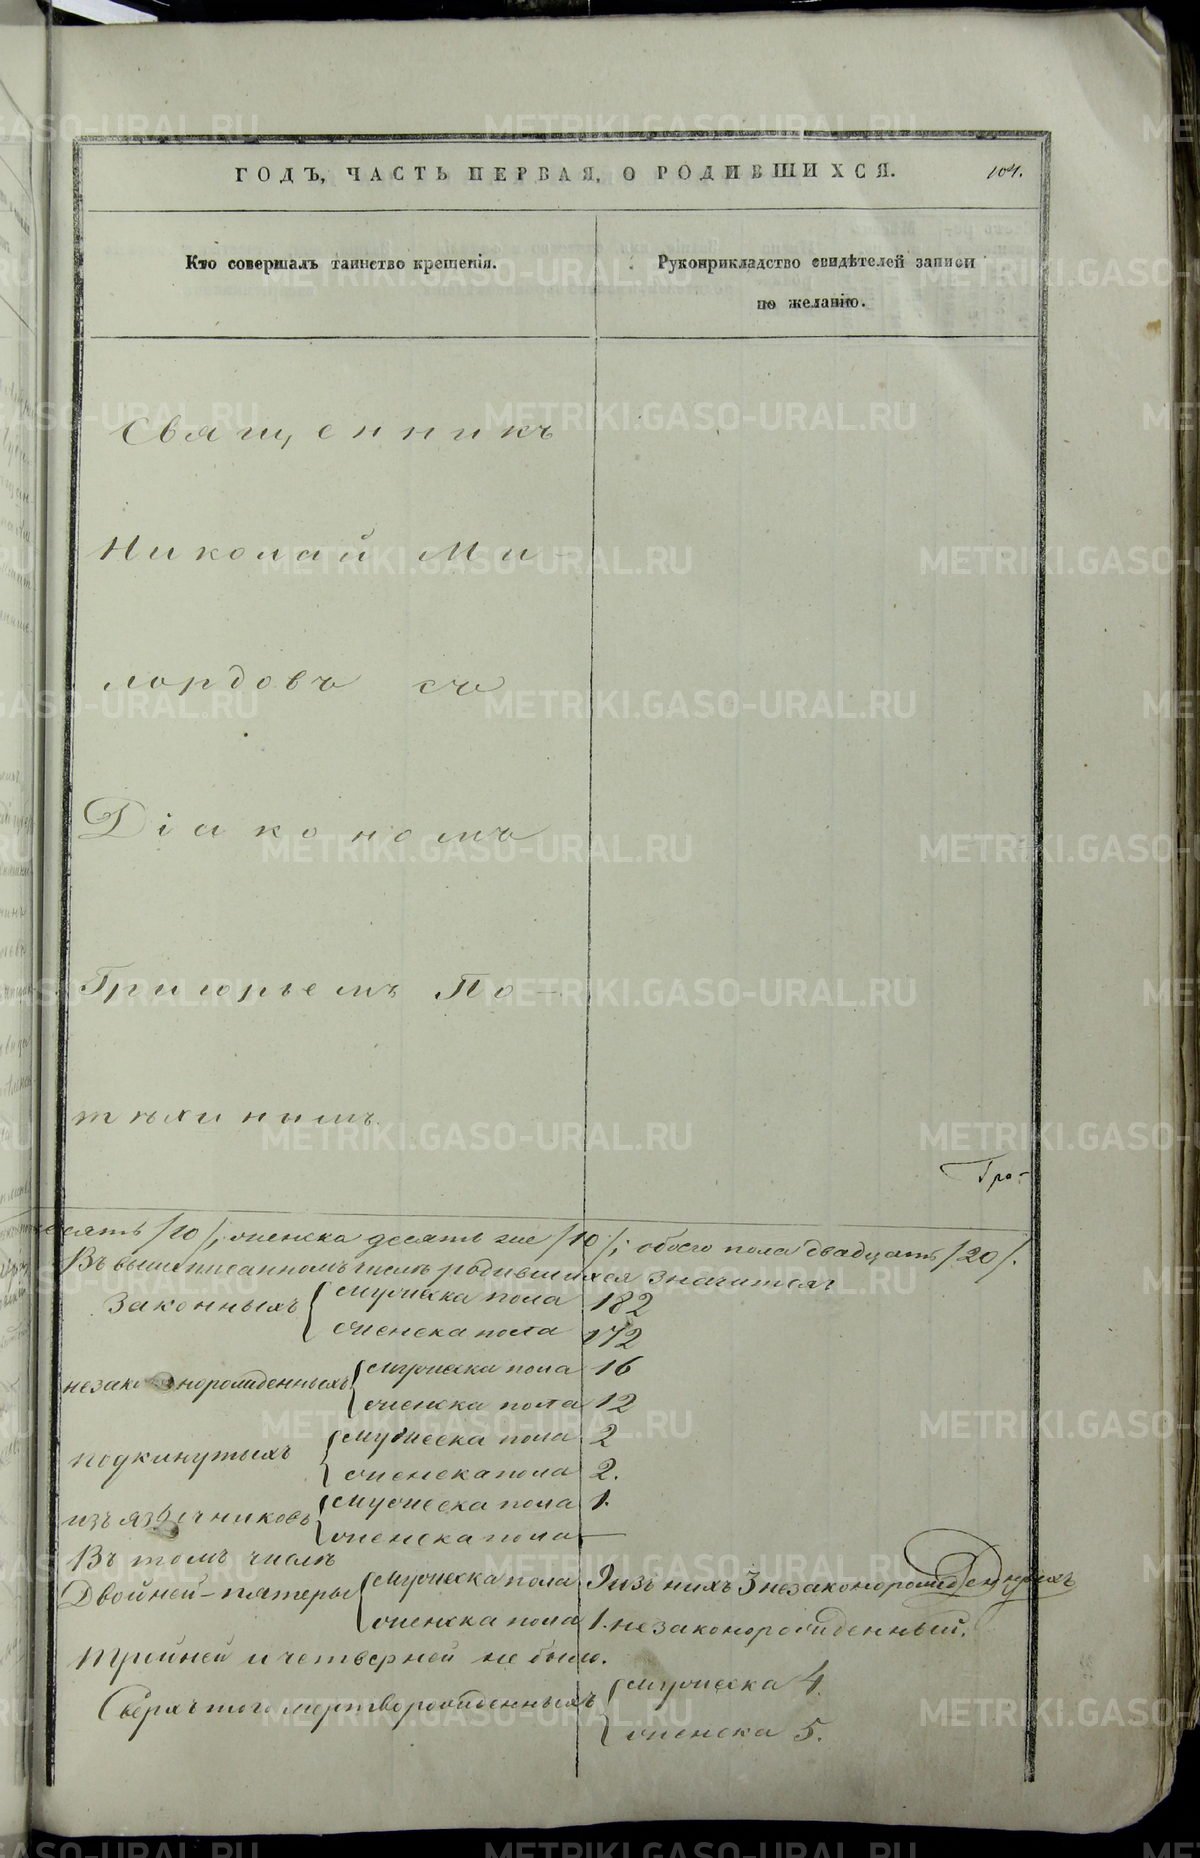 ГОДЪ, ЧАСТЬ ПЕРВАЯ, О РОДИВШИХСЯ.
104.
Кто совершалъ таинство крещенія.
Рукоприкладство свидѣтелей записи
по желанію.
Священникъ
Николай Ми-
лордовъ съ
Діакономъ
Григорьемъ По-
тѣхинымъ.
десять /10/, женска десять же /10/; обоего пола двадцать /20/.
Въ вышеписанномъ числѣ родившихся значится:
Законныхъ { мужеска пола 182
женска пола 172
незаконорожденныхъ { мужеска пола 16
женска пола 12
подкинутыхъ { мужеска пола 2
женска пола 2.
изъ язычниковъ { мужеска пола 1.
женска пола —
Въ томъ числѣ
Двойней - пятеры { мужеска пола 9 изъ нихъ 3 незаконорожденныхъ
женска пола 1. незаконорожденный.
Тройней и четверней не было.
Сверхъ того мертворожденныхъ { мужеска 4.
женска 5.
METRIKI.GASO-URAL.RU